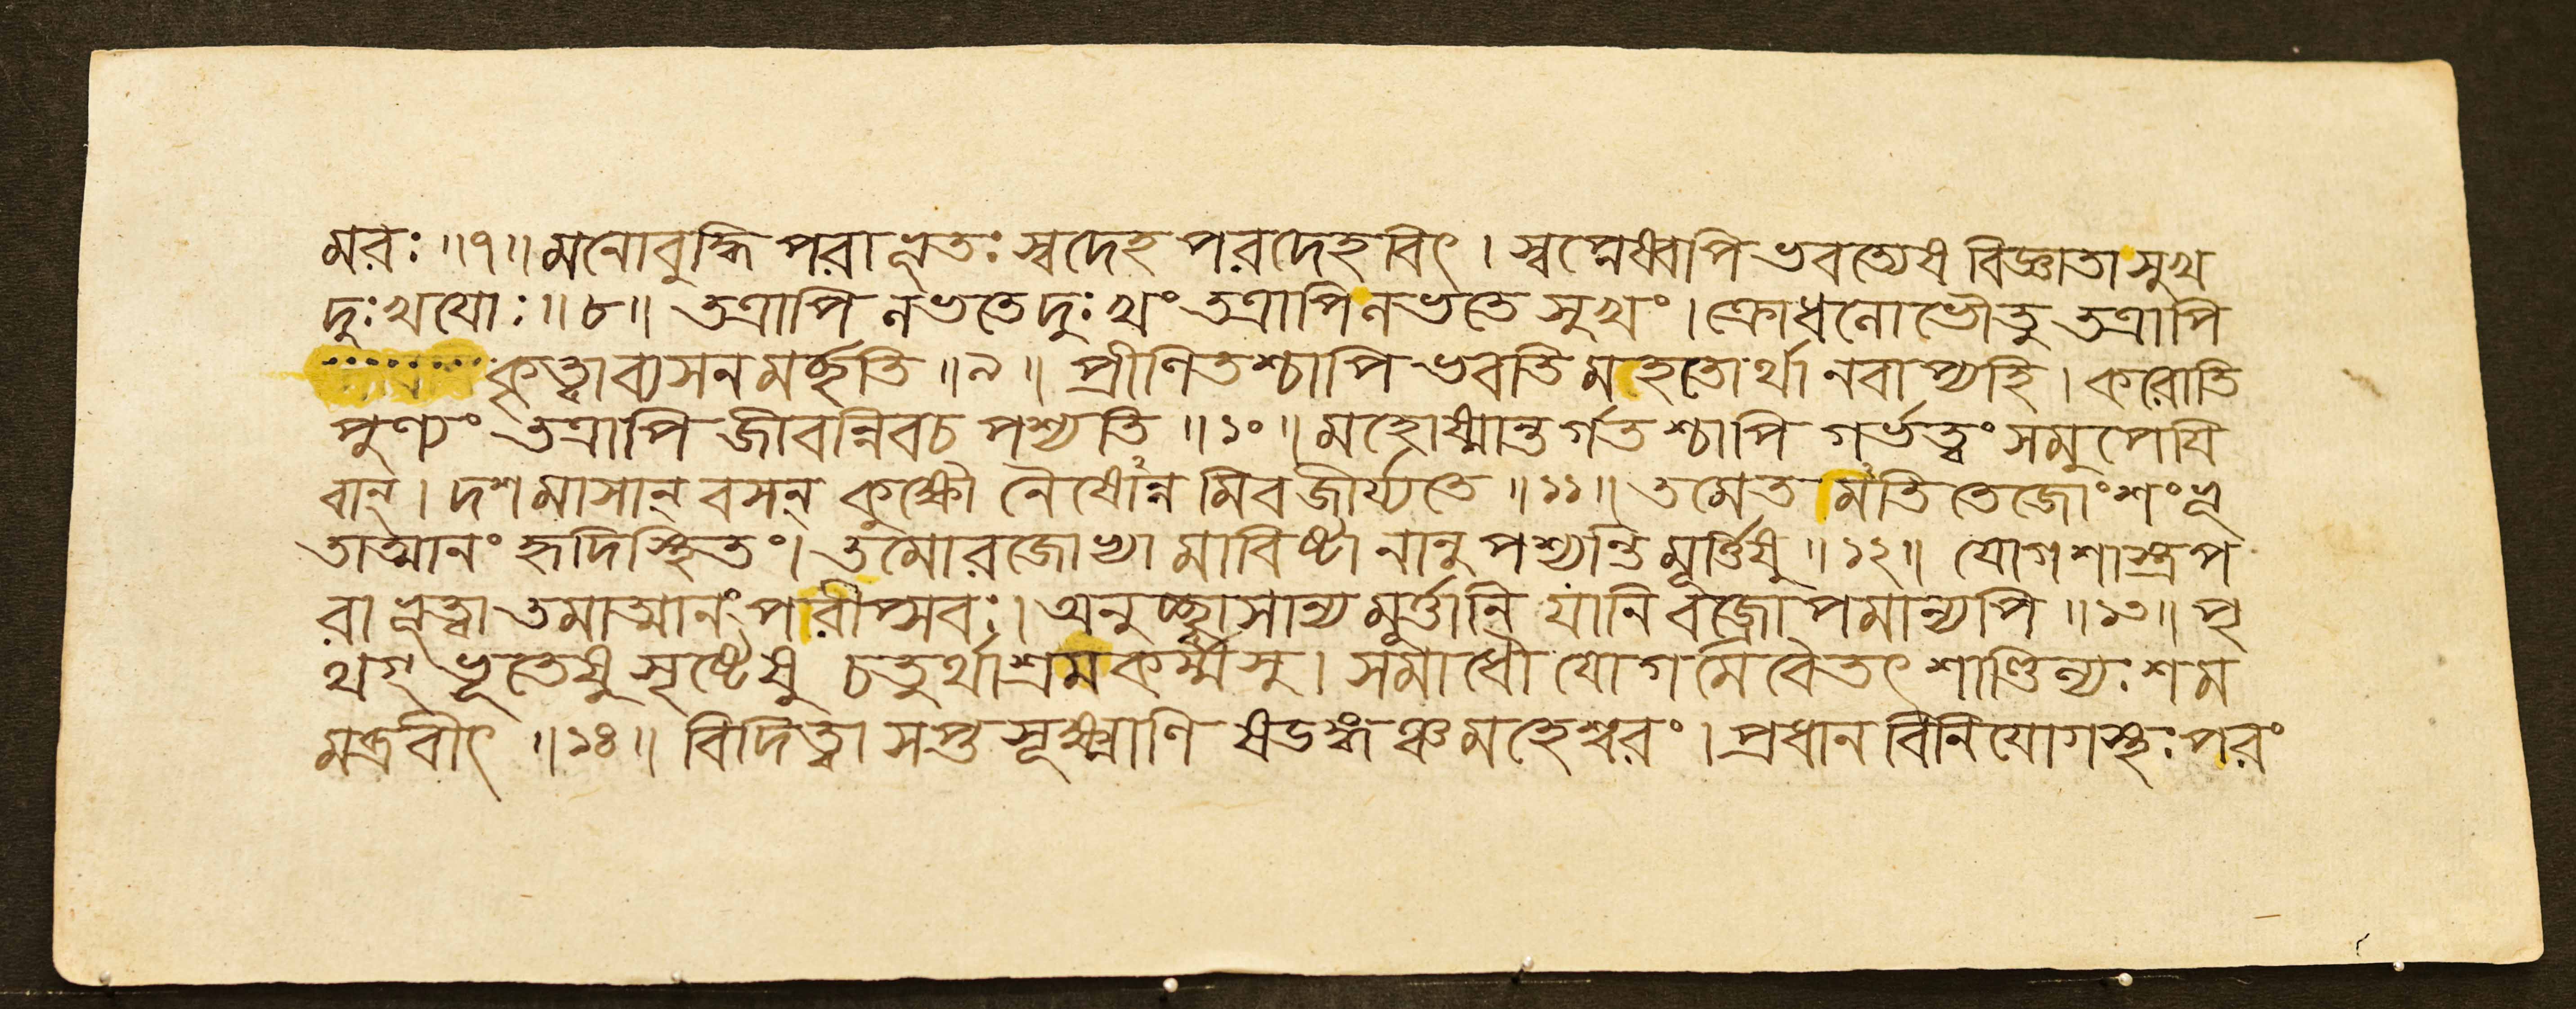 মরঃ ॥৭॥ মনোবুদ্ধি পরাভূতঃ স্বদেহ পরদেহবিৎ । স্বপ্নেষ্বপি ভবত্যেষ বিজ্ঞাতা সুখ
দুঃখযোঃ ॥৮॥ তত্রাপি লভতে দুঃখং তত্রাপি লভতে সুখং । ক্রোধলোভৌ তু তত্রাপি
কৃত্বা ব্যসনমর্চ্ছতি ॥৯॥ প্রীণিতশ্চাপি ভবতি মহতোর্থানবাপ্যহি । করোতি
পুণ্যং তত্রাপি জীবন্নিবচ পশ্যতি ॥১০॥ মহোষ্মান্তর্গতশ্চাপি গর্ভত্বং সমুপেযি
বান্ । দশমাসান্ বসন্ কুক্ষৌ নৈষোন্নমিব জীর্য্যতে ॥১১॥ তমেতমতি তেজোংশং ভূ
তাত্মানং হৃদিস্থিতং । তমোরজোভ্যামাবিষ্টা নানুপশ্যন্তি মূর্ত্তিষু ॥১২॥ যোগশাস্ত্রপ
রাভূত্বা তমাত্মানং পরীপ্সবঃ । অনুচ্ছ্বাসান্যমূর্ত্তানি যানি বজ্রোপমান্যপি ॥১৩॥ পৃ
থগ্ ভূতেষু সৃষ্টেষু চতুর্থাশ্রমকর্ম্মসু । সমাধৌ যোগমেবৈতৎ শাণ্ডিল্যঃ শম
মব্রবীৎ ॥১৪॥ বিদিত্বা সপ্ত সূক্ষ্মাণি ষডঙ্গঞ্চ মহেশ্বরং । প্রধান বিনিযোগস্থঃ পরং